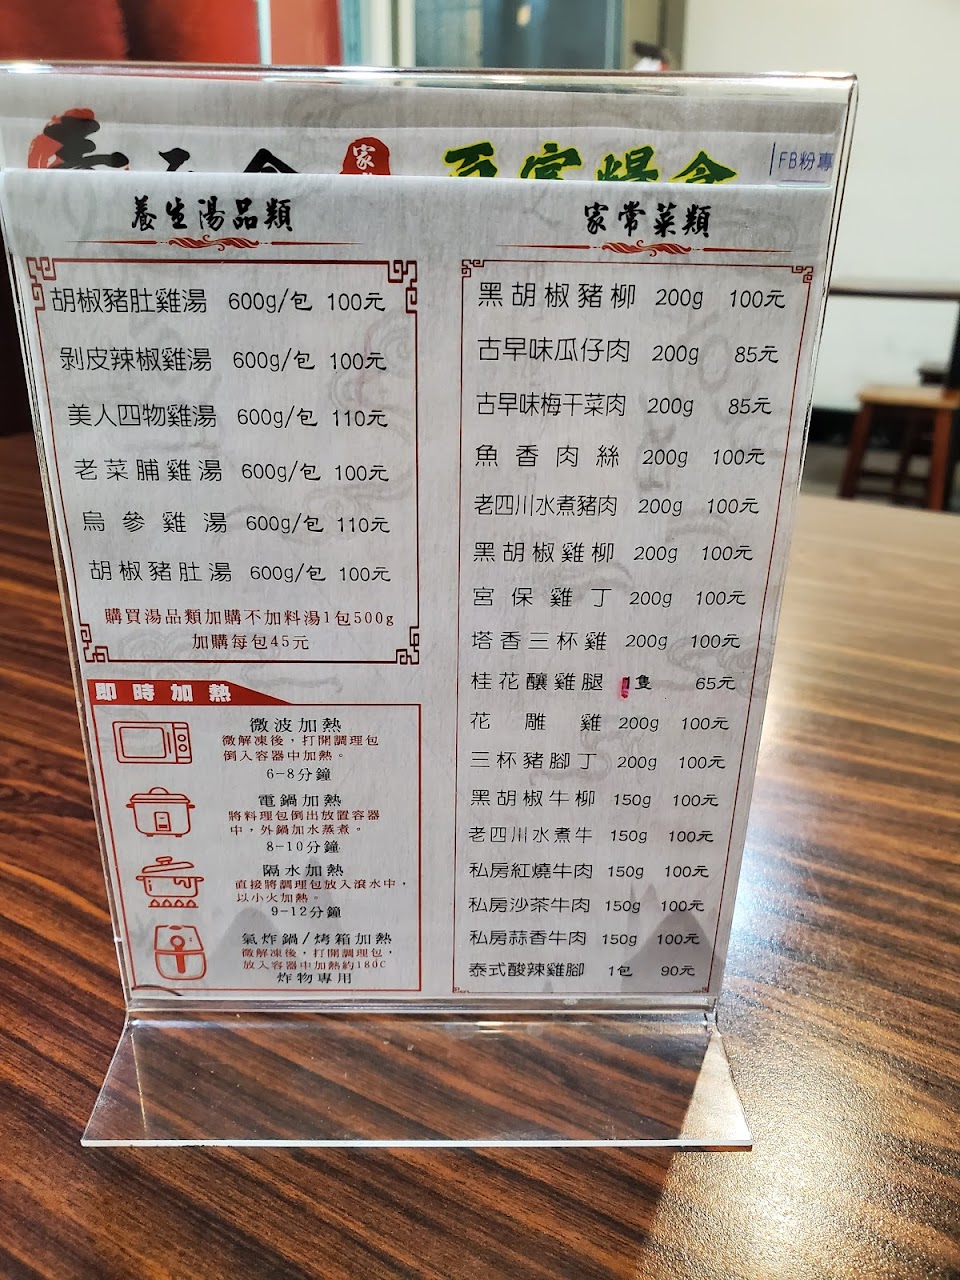 FB粉專
養生湯品類
胡椒豬肚雞湯 600g/包 100元
剝皮辣椒雞湯 600g/包 100元
美人四物雞湯 600g/包 110元
老菜脯雞湯 600g/包 100元
烏參雞湯 600g/包 110元
胡椒豬肚湯 600g/包 100元
購買湯品類加購不加料湯1包500g
加購每包45元
即時加熱
微波加熱
微解凍後，打開調理包
倒入容器中加熱。
6-8分鐘
電鍋加熱
將料理包倒出放置容器
中，外鍋加水蒸煮。
8-10分鐘
隔水加熱
直接將調理包放入滾水中，
以小火加熱。
9-12分鐘
氣炸鍋/烤箱加熱
微解凍後，打開調理包，
放入容器中加熱約180C
炸物專用
家常菜類
黑胡椒豬柳 200g 100元
古早味瓜仔肉 200g 85元
古早味梅干菜肉 200g 85元
魚香肉絲 200g 100元
老四川水煮豬肉 200g 100元
黑胡椒雞柳 200g 100元
宮保雞丁 200g 100元
塔香三杯雞 200g 100元
桂花釀雞腿 1隻 65元
花雕雞 200g 100元
三杯豬腳丁 200g 100元
黑胡椒牛柳 150g 100元
老四川水煮牛 150g 100元
私房紅燒牛肉 150g 100元
私房沙茶牛肉 150g 100元
私房蒜香牛肉 150g 100元
泰式酸辣雞腳 1包 90元